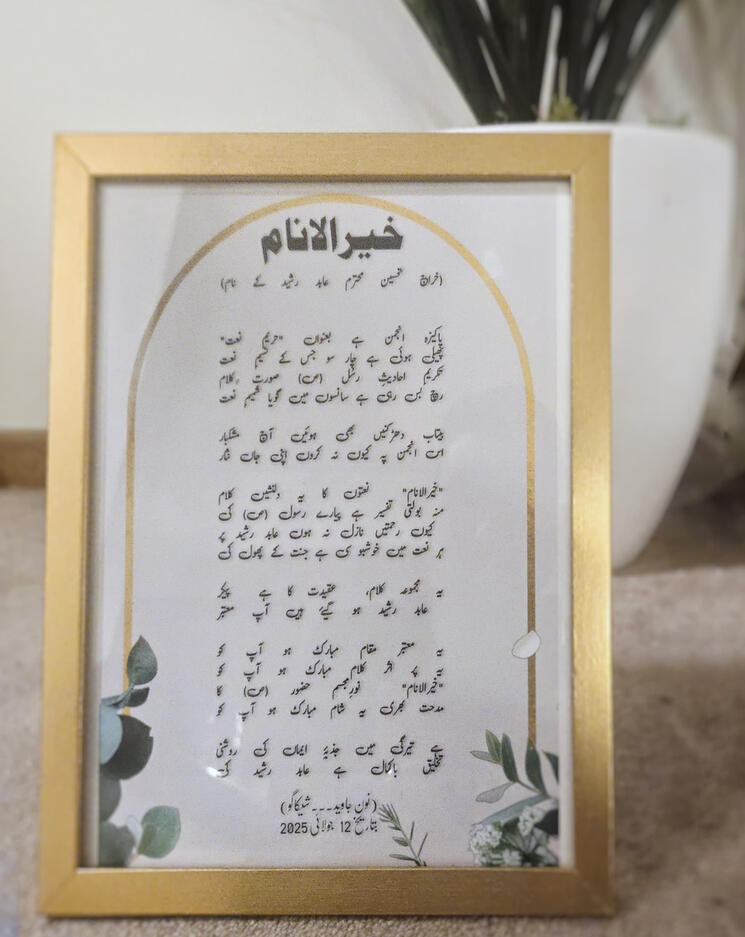 خیرالانام
(خراج تحسین محترم عابد رشید کے نام)
پاکیزہ انجمن ہے بعنوان "حریم نعت"
پھیلی ہوئی ہے چار سو جس کے نسیم نعت
تکریم احادیثِ رسل (ص) صورت کلام
رچ بس رہی ہے سانسوں میں گویا شمیم نعت
بیتاب دھڑکنیں بھی ہوئیں آج مشکبار
اس انجمن پہ کیوں نہ کروں اپنی جاں نثار
"خیرالانام" نعتوں کا یہ دلنشیں کلام
منہ بولتی تفسیر ہے پیارے رسول (ص) کی
کیوں رحمتیں نازل نہ ہوں عابد رشید پر
ہر نعت میں خوشبو سی ہے جنت کے پھول کی
یہ مجموعہ کلام، عقیدت کا ہے پیکر
عابد رشید ہو گیۓ ہیں آپ معتبر
یہ معتبر مقام مبارک ہو آپ کو
یہ پر اثر کلام مبارک ہو آپ کو
"خیرالانام" نورِمجسم حضور (ص) کا
مدحت بھری یہ شام مبارک ہو آپ کو
ہے تیرگی میں جذبۂ ایماں کی روشنی
تخلیق باکمال ہے عابد رشید کی
(نون جاوید۔۔۔شیکاگو)
بتاریخ 12 جولائی 2025